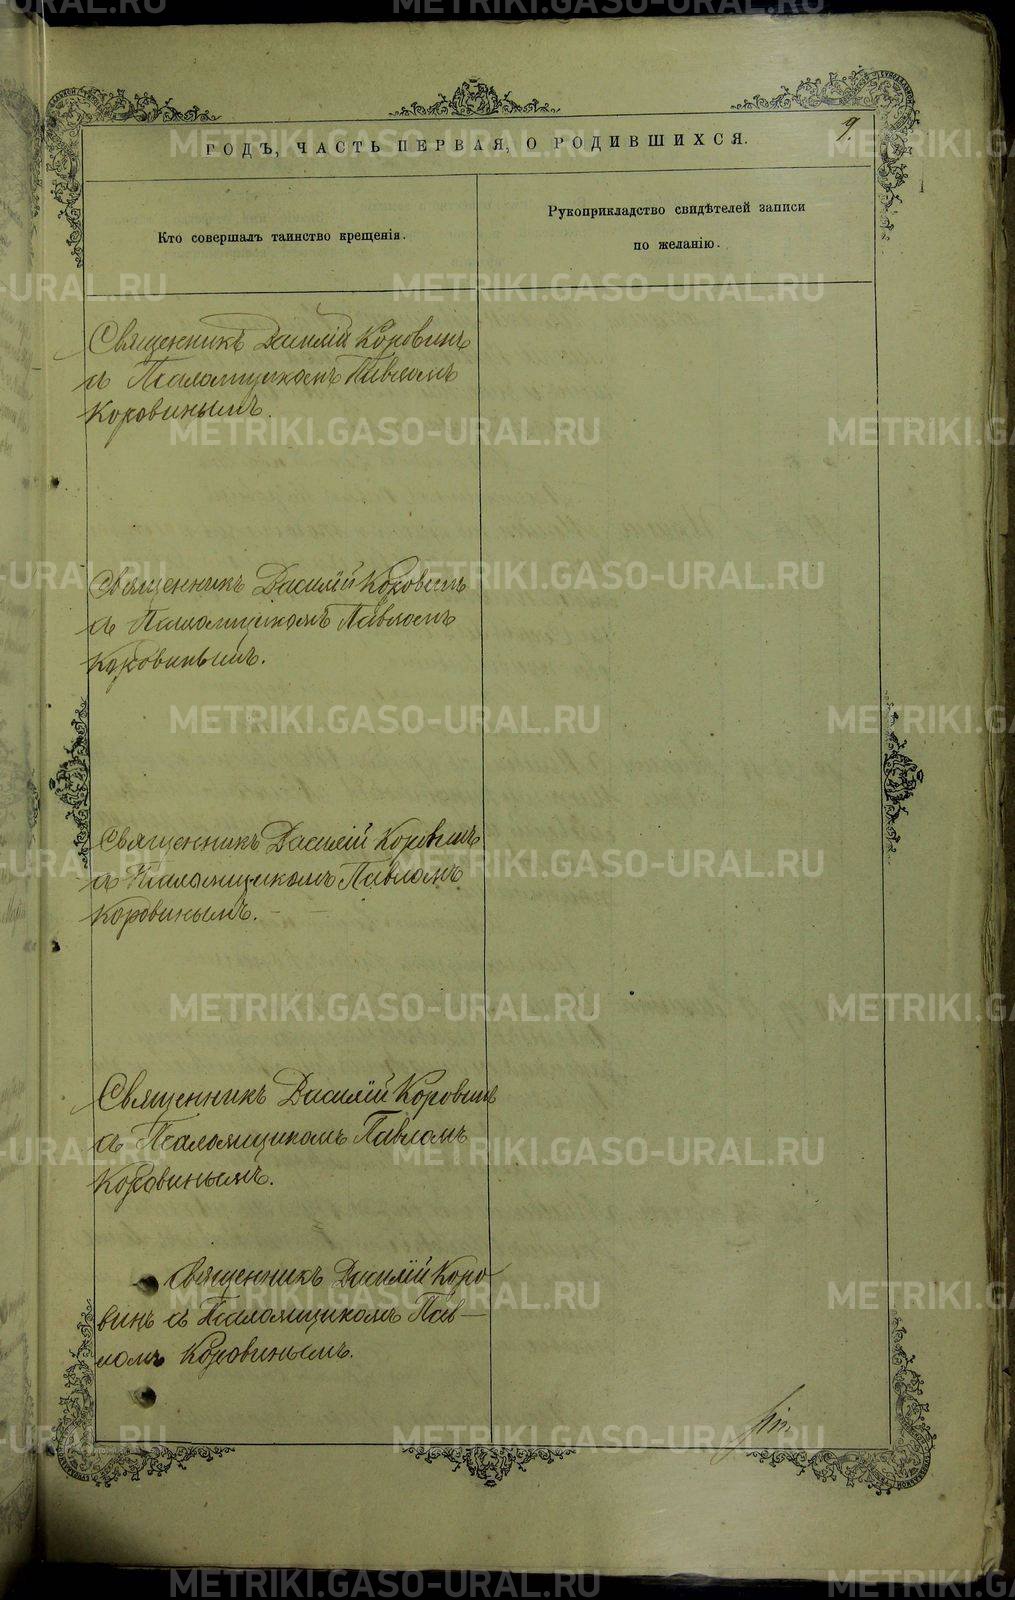 9.
ГОДЪ, ЧАСТЬ ПЕРВАЯ, О РОДИВШИХСЯ.
Кто совершалъ таинство крещенія.
Рукоприкладство свидѣтелей записи
по желанію.
Священникъ Василій Коровинъ
съ Псаломщикомъ Павломъ
Коровинымъ.
Священникъ Василій Коровинъ
съ Псаломщикомъ Павломъ
Коровинымъ.
Священникъ Василій Коровинъ
съ Псаломщикомъ Павломъ
Коровинымъ.
Священникъ Василій Коровинъ
съ Псаломщикомъ Павломъ
Коровинымъ.
Священникъ Василій Коро-
винъ съ Псаломщикомъ Пав-
ломъ Коровинымъ.
METRIKI.GASO-URAL.RU